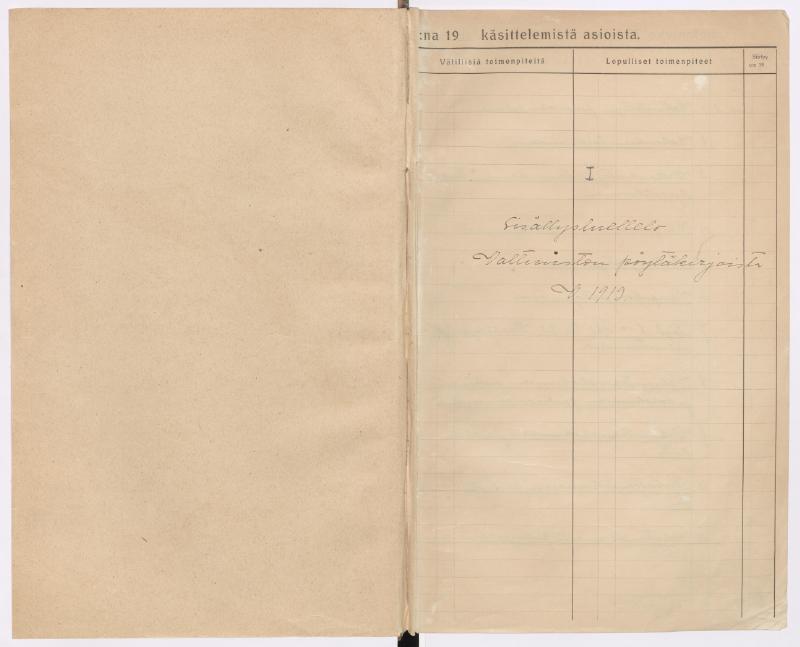 :na 19 käsittelemistä asioista.
Välillisiä toimenpiteitä
Lopulliset toimenpiteet
Siirtyy
I
Sisällysluettelo
Valtioneuston pöytäkirjoista
V. 1919